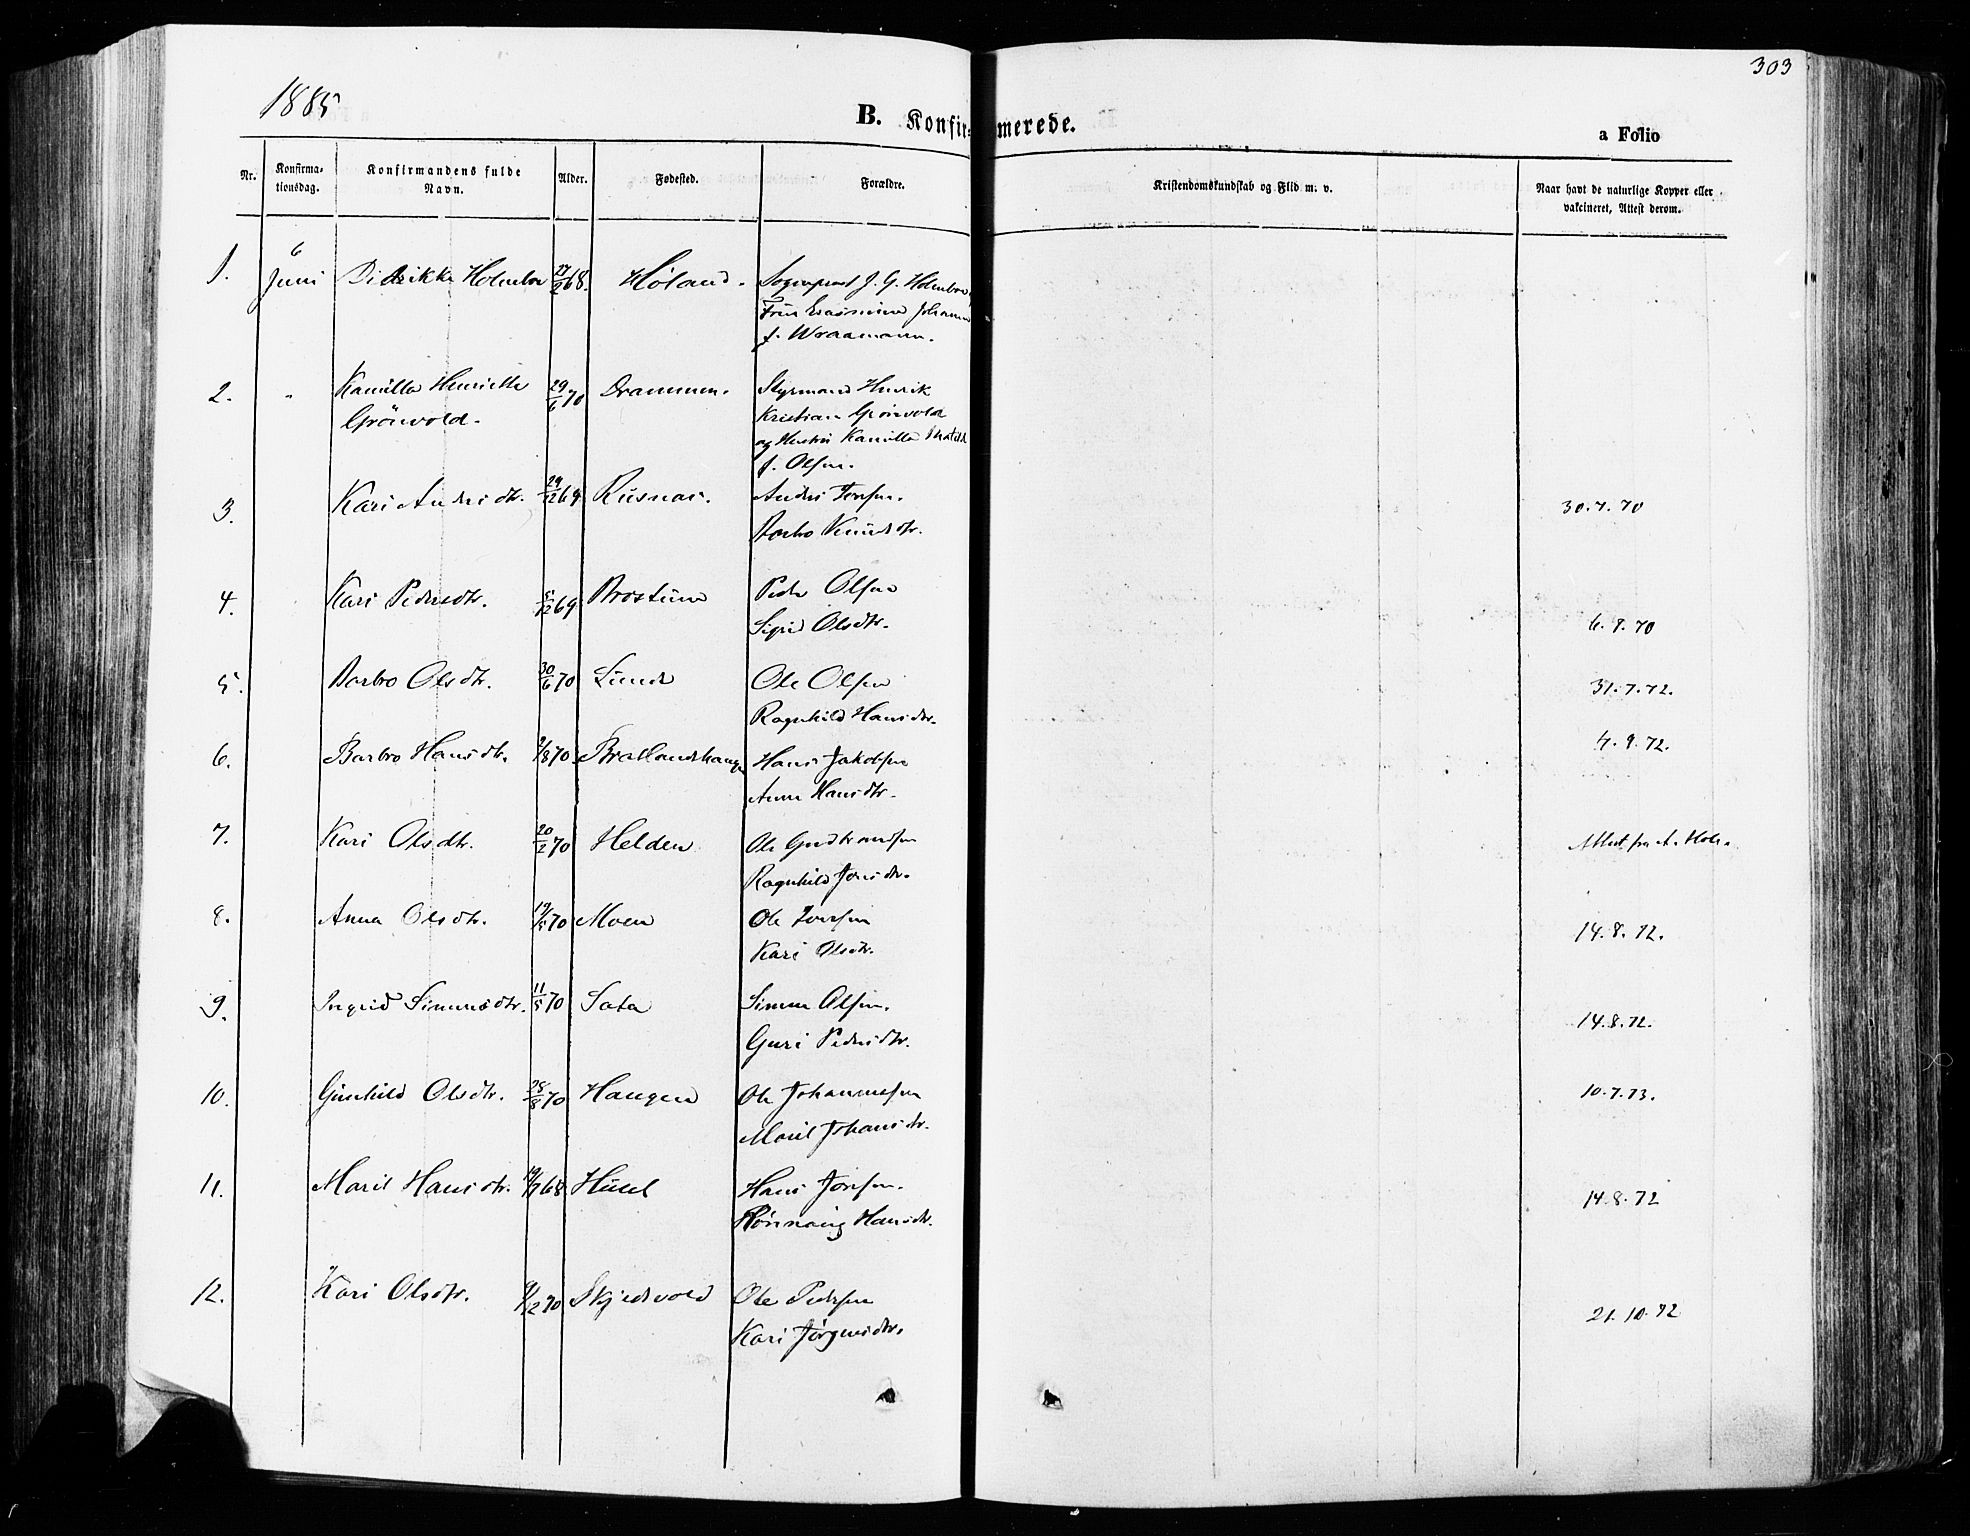 303
1885
B. Konfirmerede.
a Folio
Nr.
Konfirma-
tionsdag.
Konfirmandens fulde
Navn.
Alder.
Fødested.
Forældre.
Kristendomskundskab og Flid m. v.
Naar havt de naturlige Kopper eller
vakcineret, Attest derom.
1. 6 Juni Didrikke Holmboe 27/2 68. Høland. Sognepræst J. G. Holmboe,
Johanna
f. Wraamann.
2. " Kamilla Henriette 29/6 70 Drammen. Styrmand Henrik
Grönvold. Kristian Grönvold
og Hustru Kamilla Matild
f. Olsen.
3. Kari Andersdtr. 29/12 69 Rusnæs. Anders
Barbro Knudsdtr.
30.7.70
4. Kari Pedersdtr. 5/12 69 Peder Olsen
Sigrid Olsdtr.
6.9.70
5. Barbro Olsdtr. 30/6 70 Lunde Ole Olsen
Ragnhild Hansdtr.
31.7.72.
6. Barbro Hansdtr. 9/8 70 Brattlandshaugen Hans Jakobsen
Anne Hansdtr.
4.9.72.
7. Kari Olsdtr. 20/2 70 Helden Ole Gudbrandsen
Ragnhild Jonsdtr.
Attest fra A. Hole.
8. Anna Olsdtr. 19/5 70 Moen Ole
Kari Olsdtr.
14.8.72.
9. Ingrid Simensdtr. 11/5 70 Sata Simen Olsen.
Guri Pedersdtr.
14.8.72.
10. Gunhild Olsdtr. 28/8 70 Haugen Ole Johannesen
Marit Johansdtr.
10.7.73.
11. Marit Hansdtr. 68 Hans
Rönnaug Hansdtr.
14.8.72
12. Kari Olsdtr. 9/12 70 Skjedsvold Ole Pedersen
Kari Jörgensdtr.
21.10.72